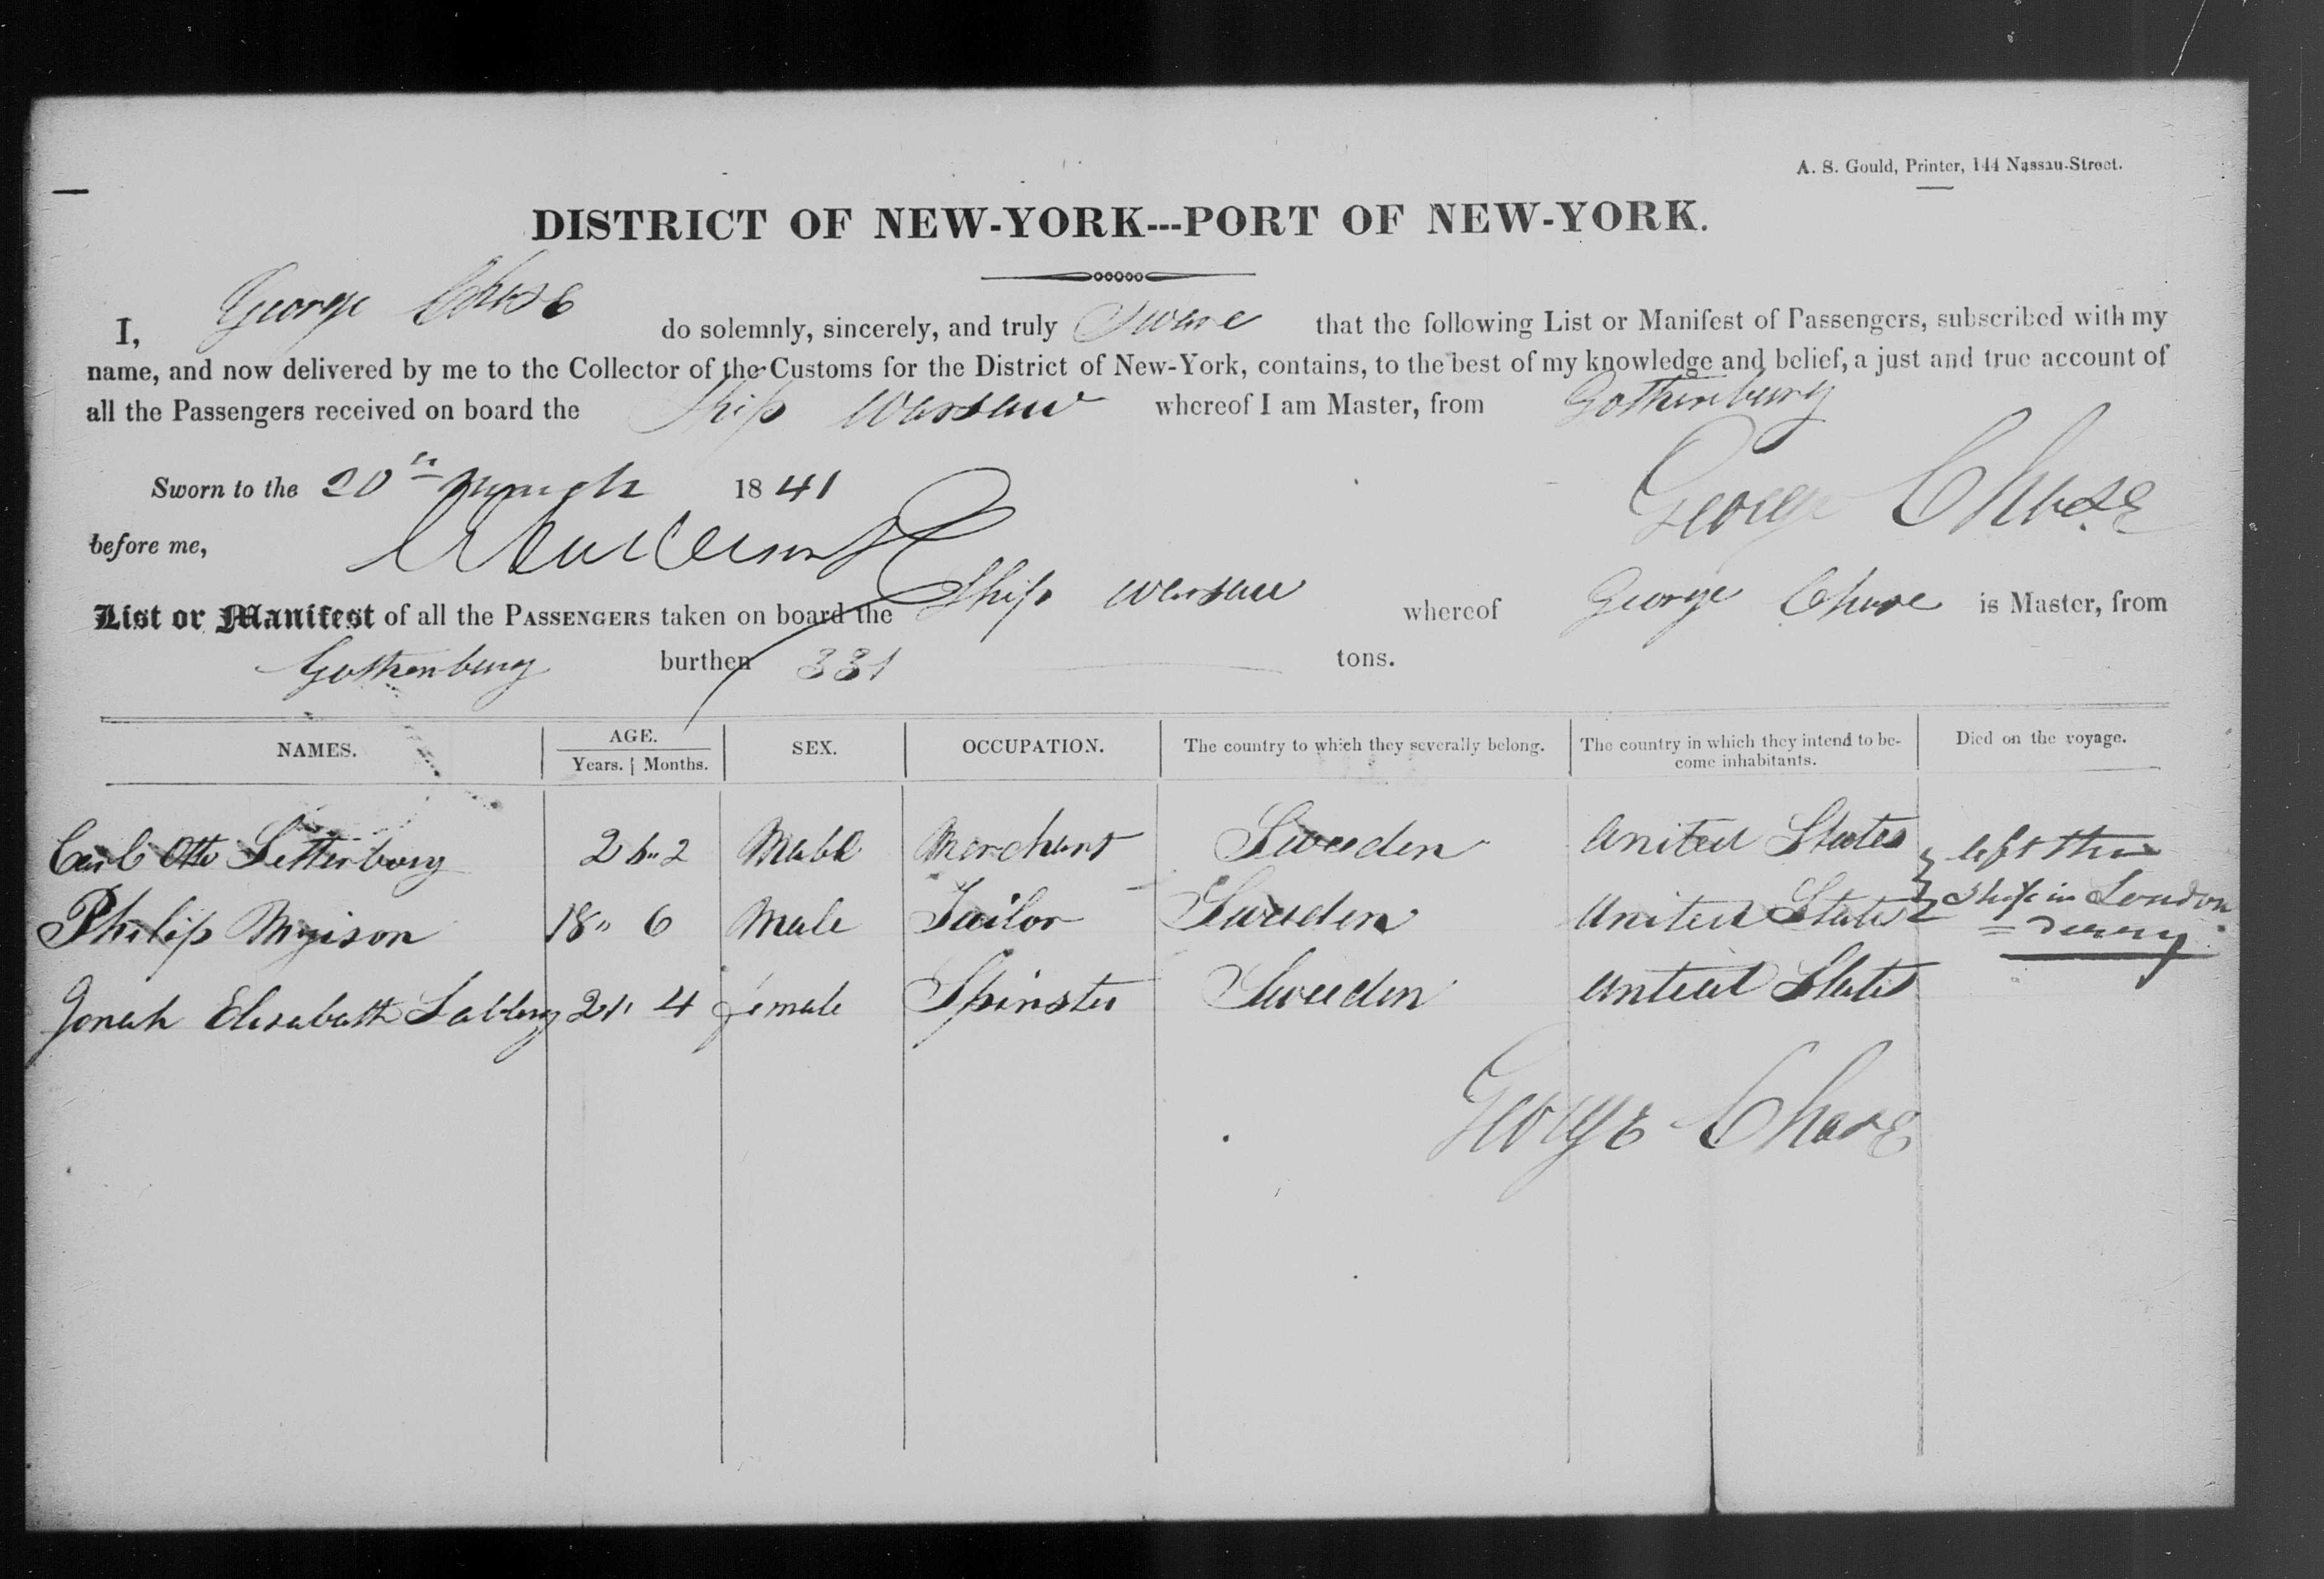 A. S. Gould, Printer, 144 Nassau-Street.
DISTRICT OF NEW-YORK---PORT OF NEW-YORK.
I, George Chase do solemnly, sincerely, and truly Sware that the following List or Manifest of Passengers, subscribed with my
name, and now delivered by me to the Collector of the Customs for the District of New-York, contains, to the best of my knowledge and belief, a just and true account of
all the Passengers received on board the Ship Warsaw whereof I am Master, from Gothenburg
Sworn to the 20th 1841 George Chase
before me,
List or Manifest of all the PASSENGERS taken on board the Ship Warsaw whereof George Chase is Master, from
Gothenburg burthen 331 tons.
NAMES. AGE. SEX. OCCUPATION. The country to which they severally belong. The country in which they intend to be- Died on the voyage.
Years. Months. come inhabitants.
Carl Otto Setterborg 26" 2 Male Merchant Sweeden United States left the
Philip 18" 6 Male Tailor Sweeden United States Ship in London
= Derry
Jonah Elisabath 21" 4 female Spinster Sweeden United States
George Chase